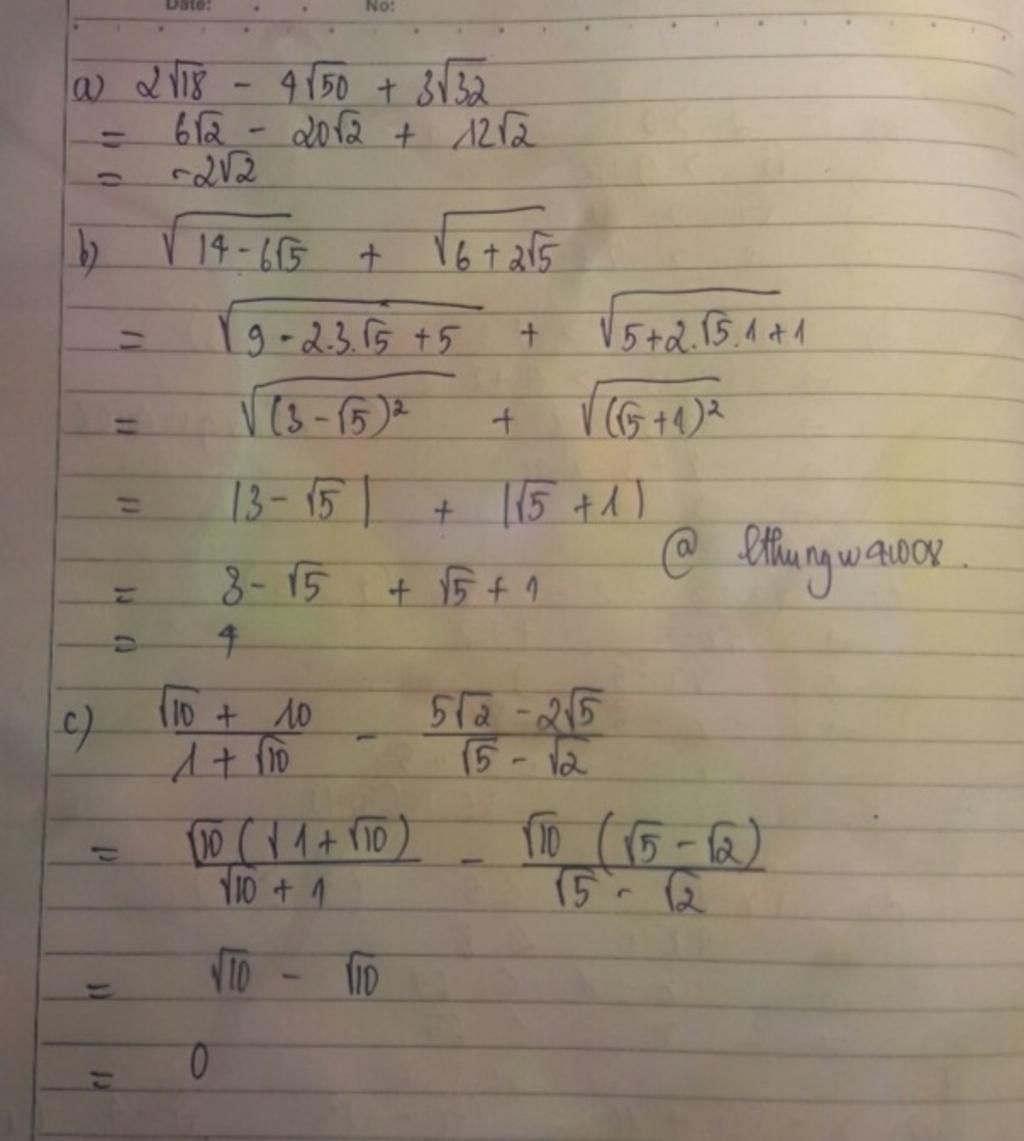 Date: No:
a) 2√18 - 4√50 + 3√32
= 6√2 - 20√2 + 12√2
= -2√2
b) √(14-6√5) + √(6+2√5)
= √(9-2.3.√5+5) + √(5+2.√5.1+1)
= √((3-√5)²) + √((√5+1)²)
= |3-√5| + |√5+1|
@ lthungw4008.
= 3-√5 + √5+1
= 4
c) (√10 + 10)/(1+√10) - (5√2-2√5)/(√5-√2)
= √10(√1+√10)/(√10+1) - √10(√5-√2)/(√5-√2)
= √10 - √10
= 0